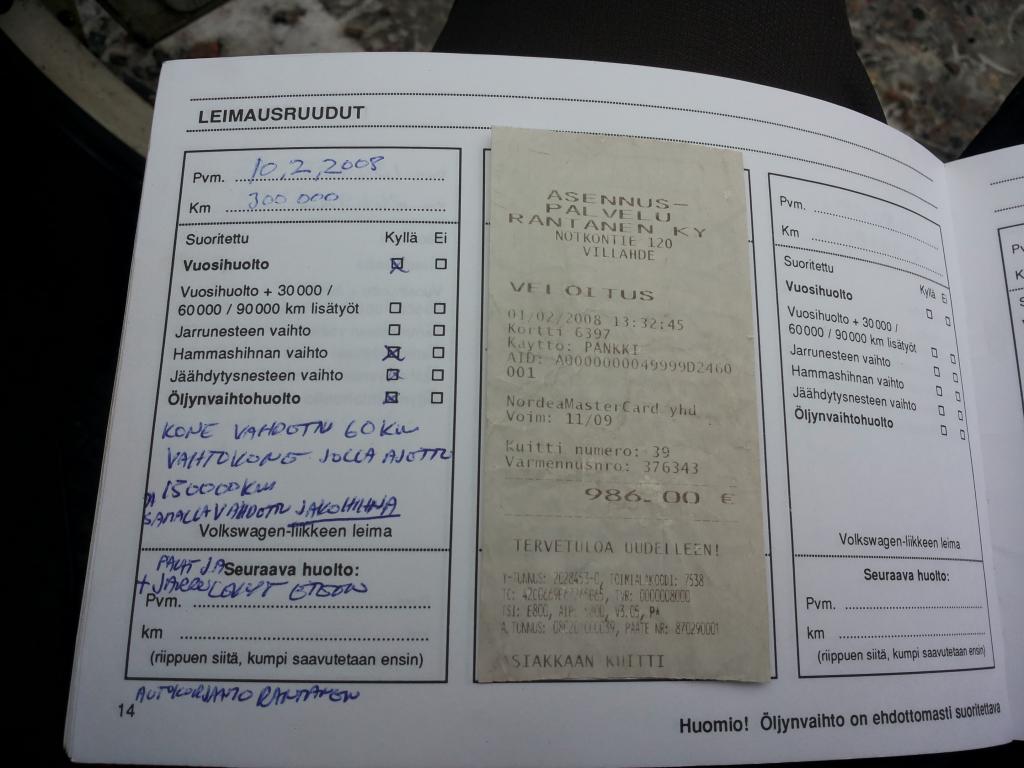 LEIMAUSRUUDUT
Pvm. 10.2.2008
Km 300 000
Suoritettu Kyllä Ei
Vuosihuolto
Vuosihuolto + 30 000 /
60 000 / 90 000 km lisätyöt
Jarrunesteen vaihto
Hammashihnan vaihto
Jäähdytysnesteen vaihto
Öljynvaihtohuolto
KONE VAHDETTU
VAHTOKONE JOLLA AJETTU
150000KM
SAMALLA VAHDETTU JAKOHIHNA
Volkswagen-liikkeen leima
PALAT JA
Seuraava huolto:
+ JARRULEVYT ETEEN
Pvm.
km
(riippuen siitä, kumpi saavutetaan ensin)
AUTOKORJAAMO RANTANEN
14
ASENNUS-
PALVELU
RANTANEN KY
NOTKONTIE 120
VILLÄHDE
VELOITUS
01/02/2008 13:32:45
Kortti 6397
Käyttö: PANKKI
AID: A0000000049999D2460
001
NordeaMasterCard yhd
Voim: 11/09
Kuitti numero: 39
Varmennusnro: 376343
986.00 €
TERVETULOA UUDELLEEN!
Y-TUNNUS: 2028453-0, TOIMIALAKOODI: 7538
TVR: 0000008000
TSI: E800, V3.05, PA
A.TUNNUS: PÄÄTE NR: 870290001
SIAKKAAN KUITTI
Pvm.
Km
Suoritettu Kyllä Ei
Vuosihuolto
Vuosihuolto + 30 000 /
60 000 / 90 000 km lisätyöt
Jarrunesteen vaihto
Hammashihnan vaihto
Jäähdytysnesteen vaihto
Öljynvaihtohuolto
Volkswagen-liikkeen leima
Seuraava huolto:
Pvm.
km
(riippuen siitä, kumpi saavutetaan ensin)
Huomio! Öljynvaihto on ehdottomasti suoritettava